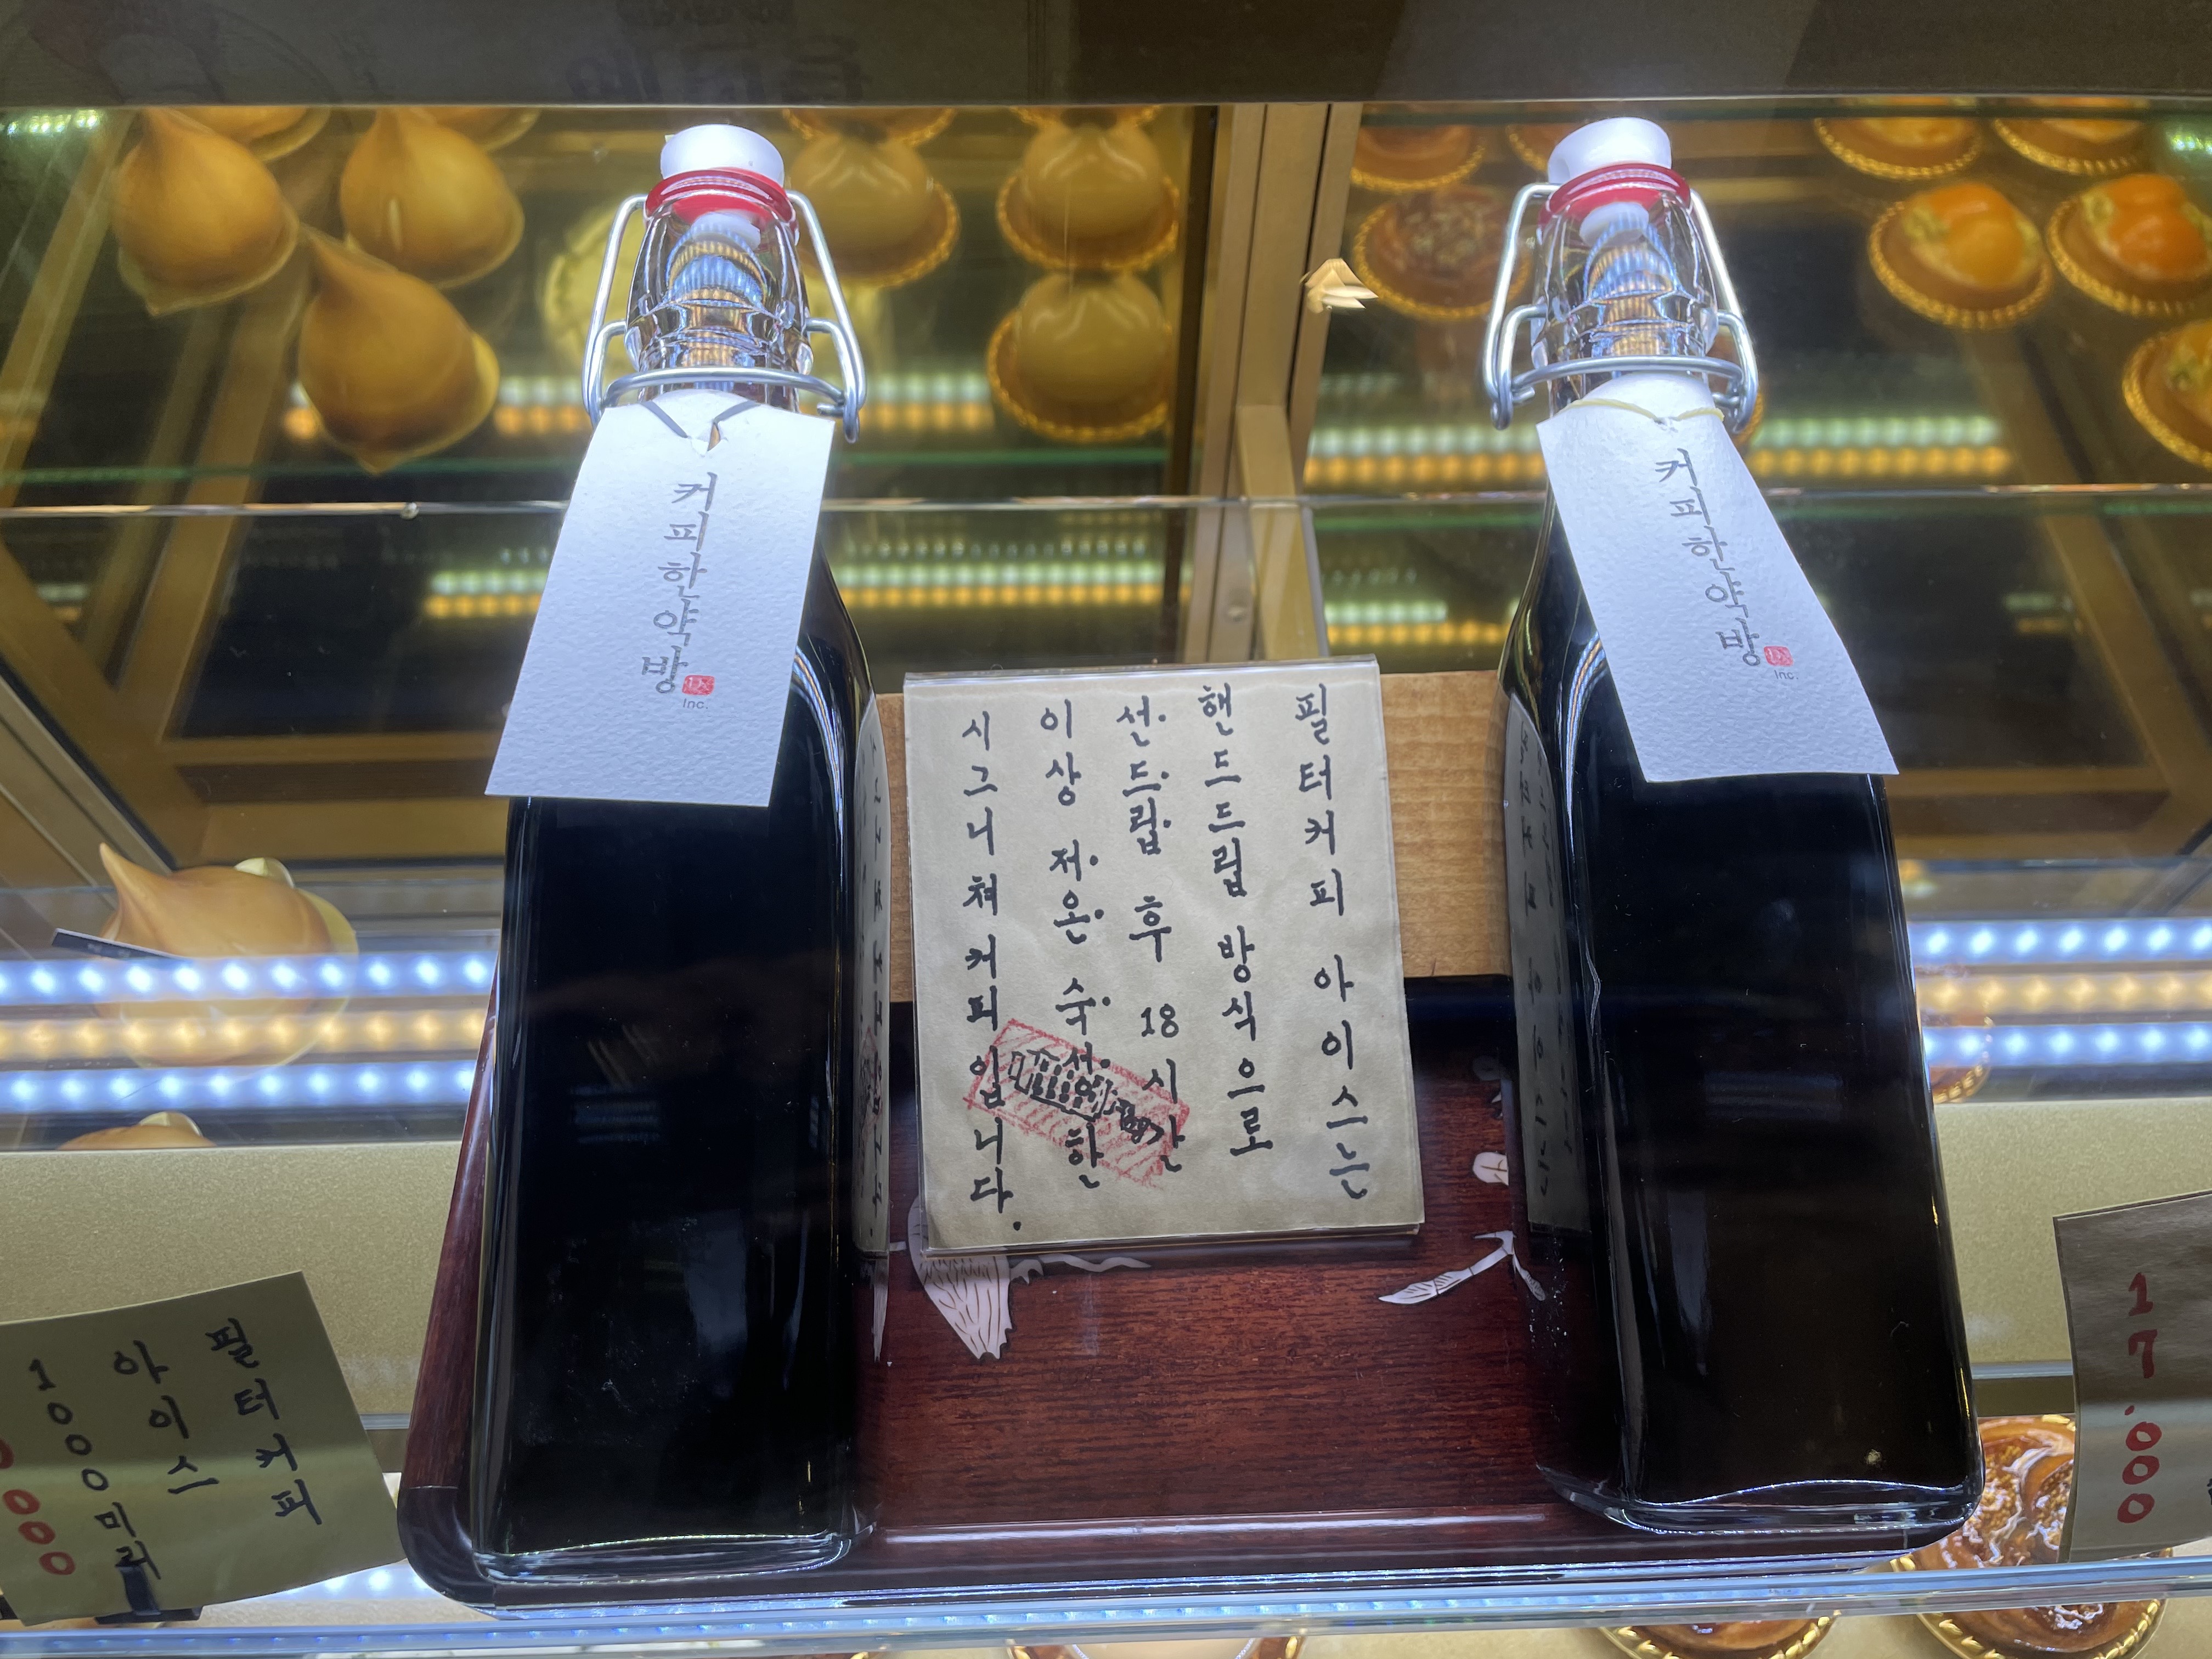 커피한약방
Inc.
커피한약방
Inc.
필터커피 아이스는
핸드드립 방식으로
선드립 후 18시간
이상 저온 숙성한
시그니쳐 커피입니다.
필터커피
아이스
1000미리
000
17.000